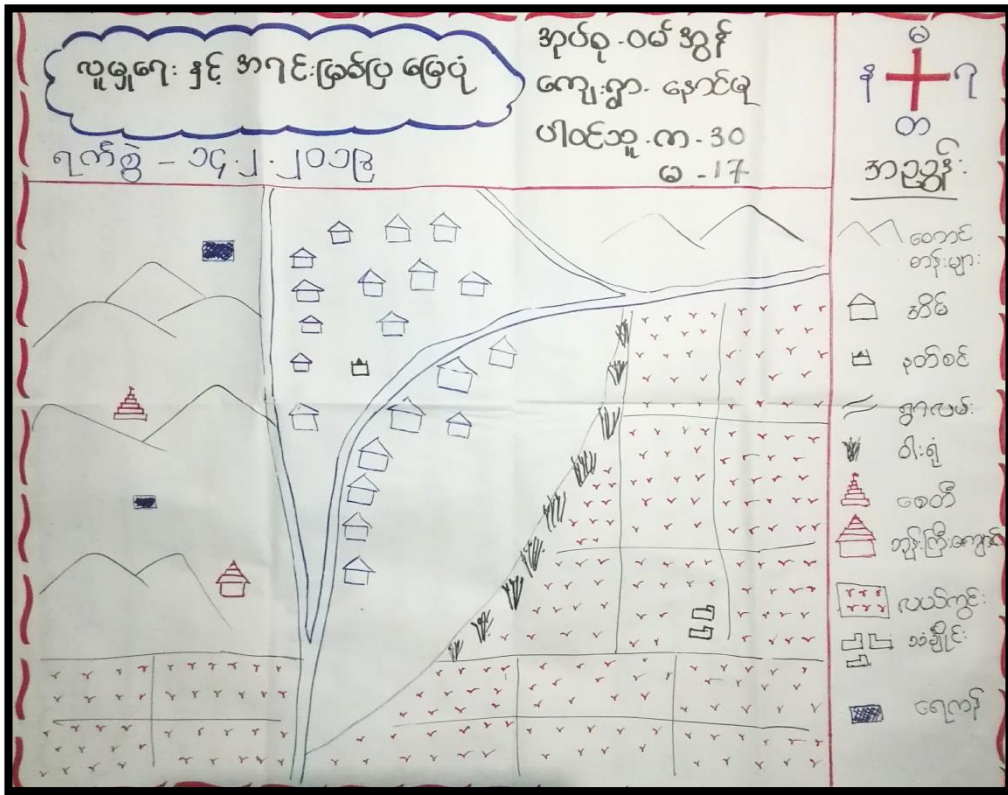 လူမှုရေး နှင့် အရင်းမြစ်ပြ မြေပုံ
ရက်စွဲ - ၁၄.၂.၂၀၁၉
အုပ်စု - ဝမ်အွန်
ကျေးရွာ - နောင်မု
ပါဝင်သူ - က - 30
မ - 17
မ
န ရ
တ
အညွှန်း
တောင်
တန်းများ
အိမ်
နတ်စင်
ရွာလမ်း
ဝါးရုံ
စေတီ
ဘုန်းကြီးကျောင်း
လယ်ကွင်း
သင်္ချိုင်း
ရေကန်